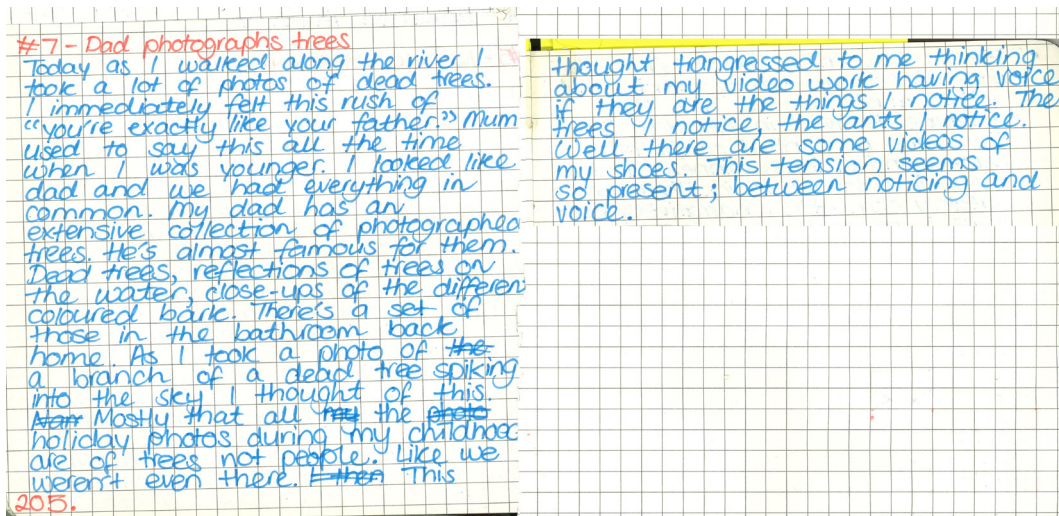 #7 - Dad photographs trees
Today as I walked along the river I
took a lot of photos of dead trees.
I immediately felt this rush of
"you're exactly like your father." Mum
used to say this all the time
when I was younger. I looked like
dad and we had everything in
common. My dad has an
extensive collection of photographed
trees. He's almost famous for them.
Dead trees, reflections of trees on
the water, close-ups of the different
coloured bark. There's a set of
those in the bathroom back
home. As I took a photo of the
a branch of a dead tree spiking
into the sky I thought of this.
Mostly that all my the photo
holiday photos during my childhood
are of trees not people. Like we
weren't even there. I then This
205.
thought trangressed to me thinking
about my video work having voice
if they are the things I notice. The
trees I notice, the ants I notice.
Well there are some videos of
my shoes. This tension seems
so present; between noticing and
voice.